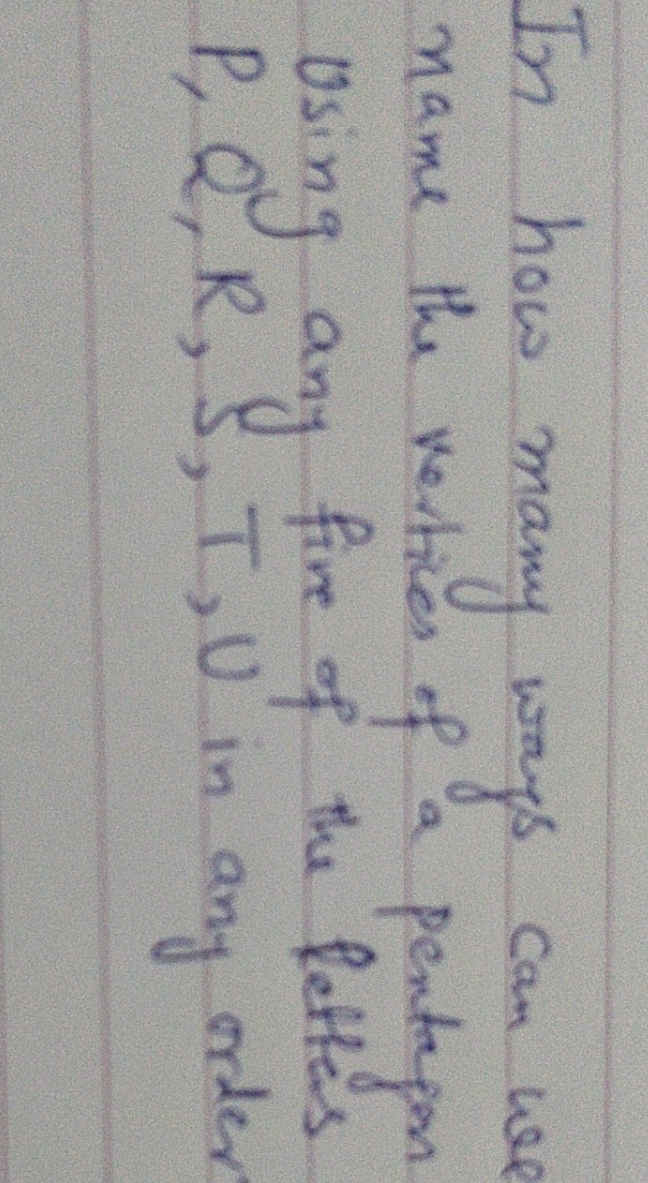 In how many ways can we
name the vertices of a pentagon
Using any five of the letters
P, Q, R, S, T, U in any order